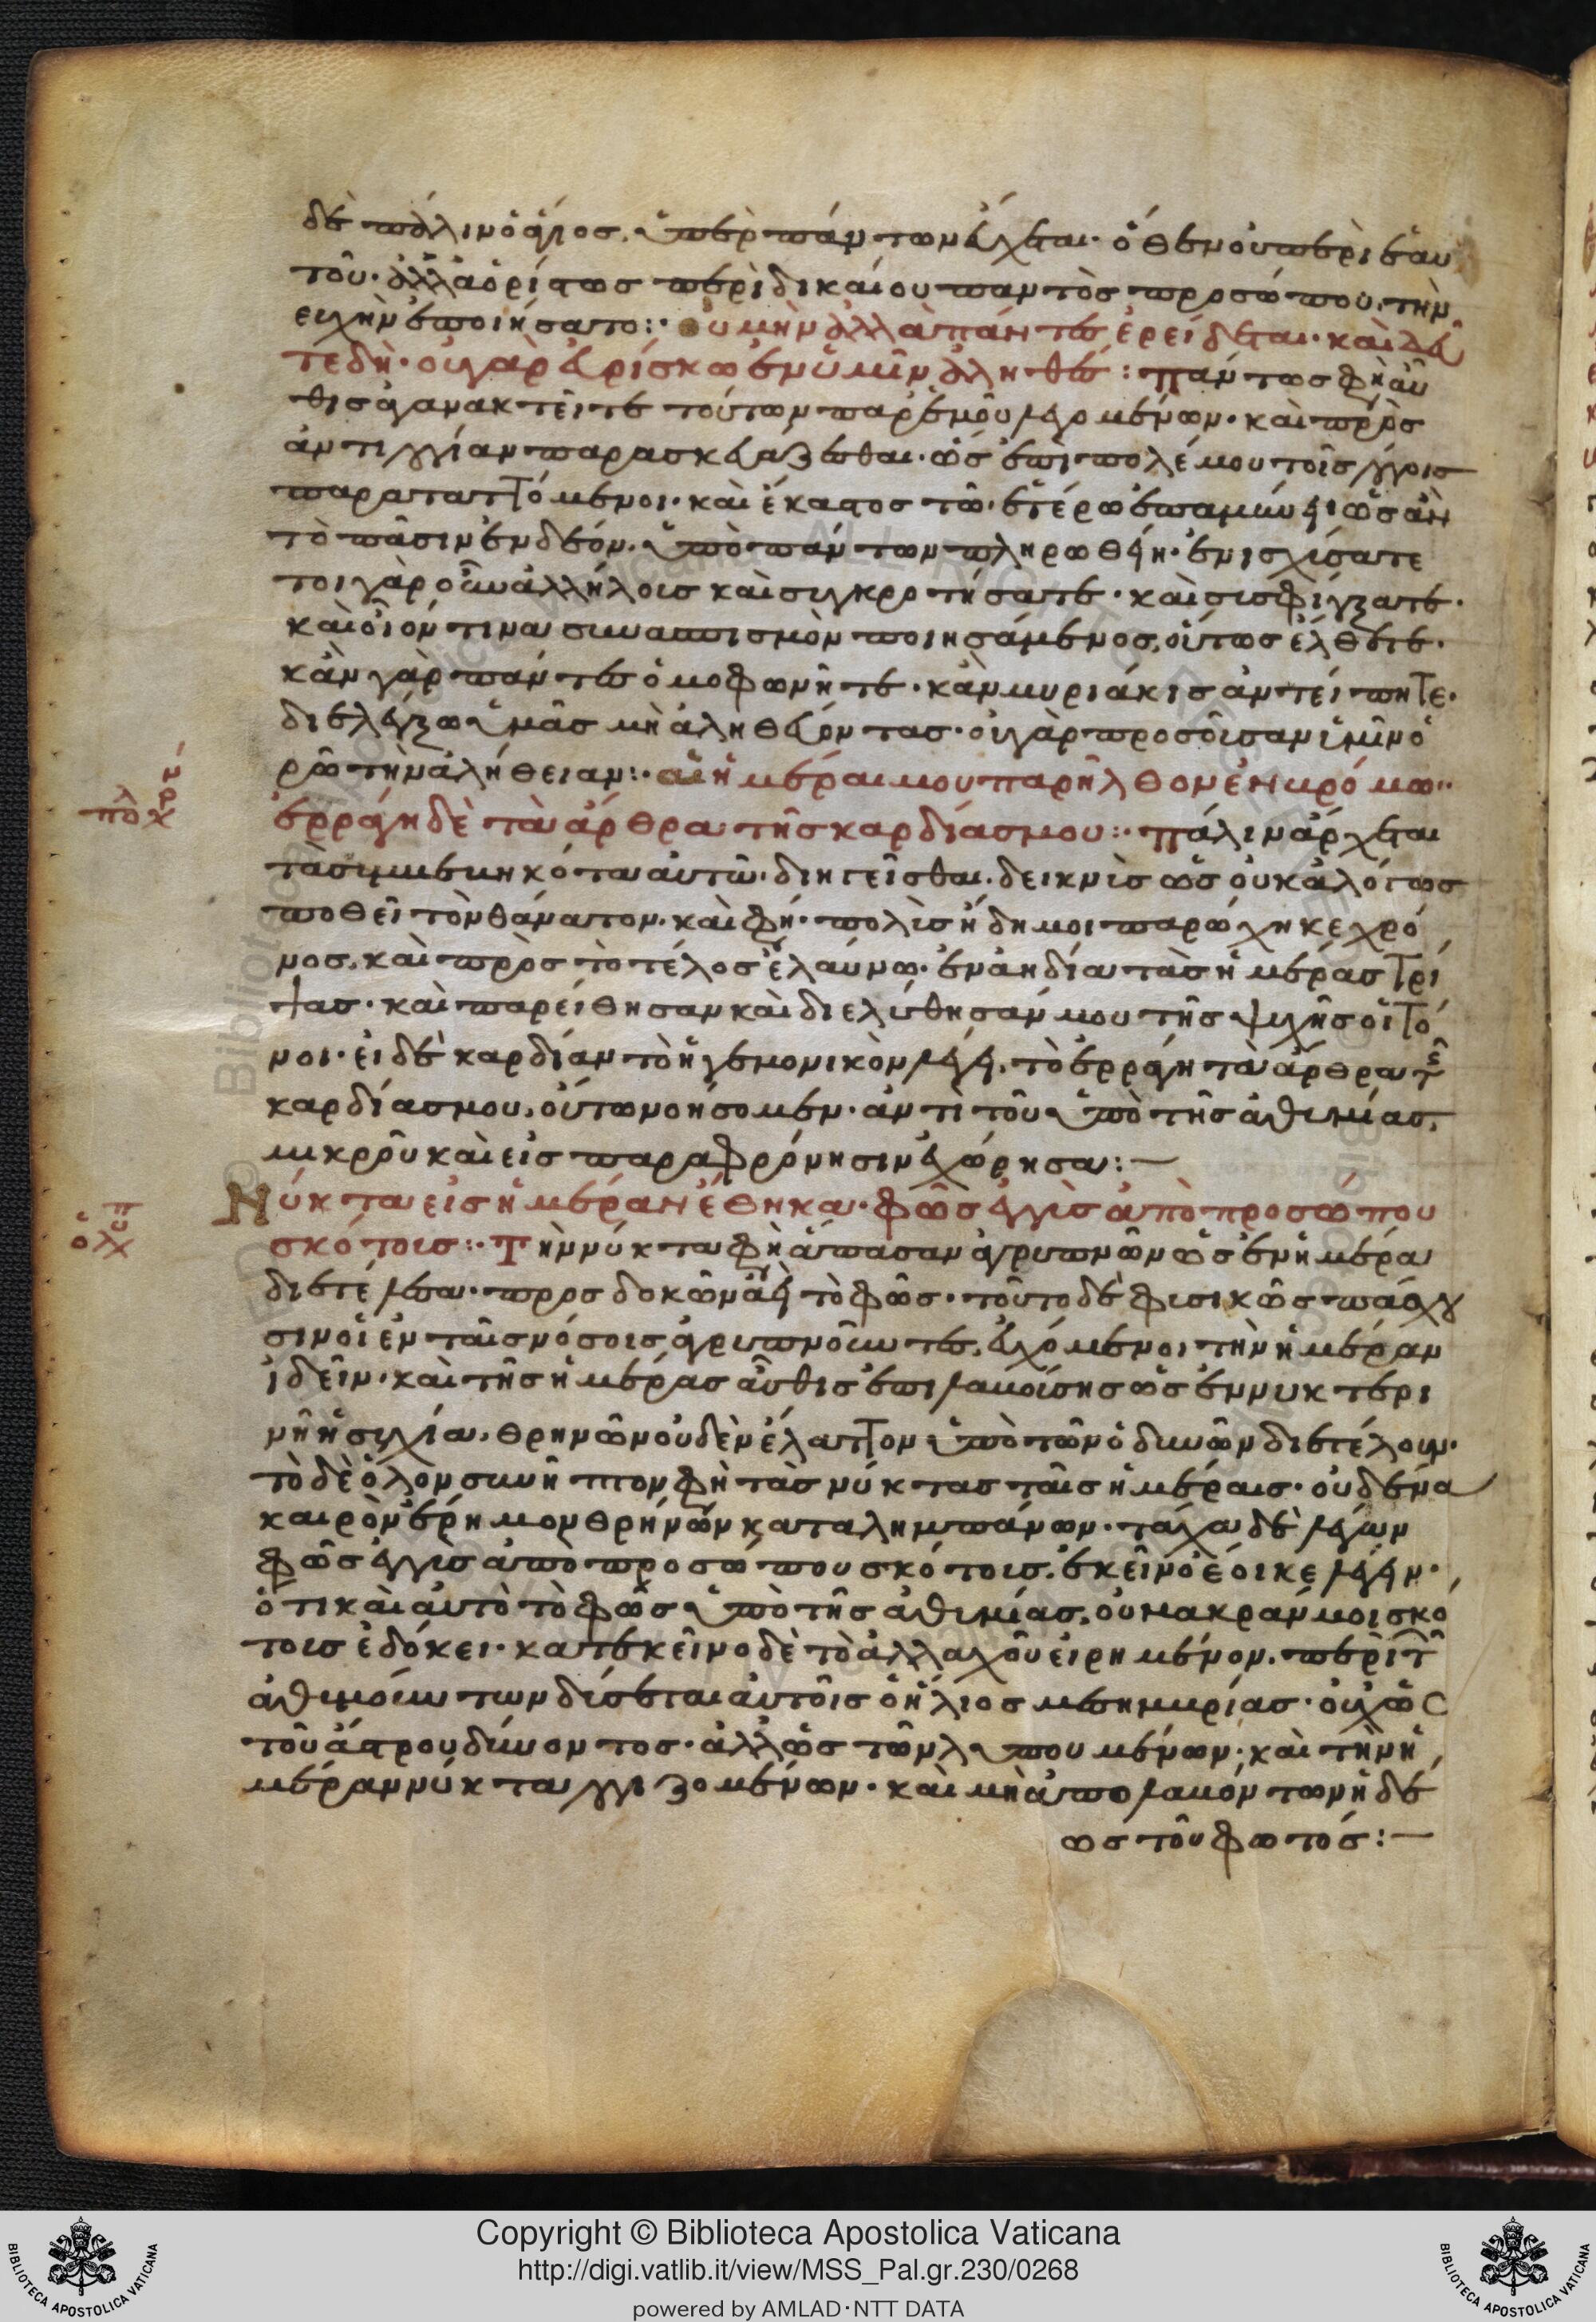 δὲ πάλιν ὁ ἅγιος, ὑπὲρ πάντων εὔχεται· ὅθεν οὐ περὶ ἑαυ
τοῦ· ἀλλὰ ἀορίστως περὶ δικαίου παντὸς προσώπου, τὴν
εὐχὴν ἐποιήσατο: οὐ μὴν ἀλλὰ πάντες ἐρείδεται· καὶ δεῦ
τε δὴ· οὐ γὰρ εὑρίσκω ἐν ὑμῖν ἀληθές: πάντως φὴ αὖ
θις ἀγανακτεῖτε τούτων παρ' ἐμοῦ λεγομένων· καὶ πρὸς
ἀντιλογίαν παρασκευάζεσθαι· ὡς ἐπὶ πολέμου τοῖς λόγοις
παρατατTόμενοι· καὶ ἕκαστος τῶ ἑτέρω ἐπαμύνει ὡς ἂν
τὸ πᾶσιν ἐνδεὸν, ὑπὸ πάντων πληρωθείη· ἐνισχύσατε
τοιγὰροῦν ἀλλήλοις καὶ συγκροτήσατε· καὶ συσφίγξατε·
καὶ οἷόν τινα συνασπισμὸν ποιησάμενος, οὕτως ἔλθετε·
κἂν γὰρ πάντες ὁμοφωνῆτε· κἂν μυριάκις ἀντείπητε·
διελέγξω ὑμᾶς μὴ ἀληθεύοντας· οὐ γὰρ προσοῦσαν ὑμῖν ὁ
ρῶ τὴν ἀλήθειαν: αἱ ἡμέραι μου παρῆλθον ἐν βρόμω
ἐρράγη δὲ τὰ ἄρθρα τῆς καρδίας μου: πάλιν ἄρχεται
τὰ συμβεβηκότα αὐτῶ διηγεῖσθαι, δεικνὺς ὡς οὐκ ἀλόγως
ποθεῖ τὸν θάνατον, καὶ φή· πολὺς ἤδη μοι παρώχηκε χρό
νος, καὶ πρὸς τὸ τέλος ἐλαύνω· ἐν ἀηδία τὰς ἡμέρας τρί
ψας· καὶ παρείθησαν καὶ διελύθησάν μου τῆς ψυχῆς οἱ τό
νοι· εἰ δὲ καρδίαν τὸ ἡγεμονικὸν λέγει, τὸ ἐρράγη τὰ ἄρθρα τῆς
καρδίας μου, οὕτω νοήσομεν· ἀντὶ τοῦ ὑπὸ τῆς ἀθυμίας,
μικροῦ καὶ εἰς παραφρόνησιν ἐχώρησα:
Νύκτα εἰς ἡμέραν ἔθηκα· φῶς ἐγγὺς ἀπὸ προσώπου
σκότους: Τὴν νύκτα φὴ ἅπασαν ἀγρυπνῶν ὡς ἐν ἡμέρα
διετέλεσα· προσδοκῶν ἀεὶ τὸ φῶς· τοῦτο δὲ φυσικῶς πάσχου
σιν οἱ ἐν ταῖς νόσοις ἀγρυπνοῦντες, εὐχόμενοι τὴν ἡμέραν
ἰδεῖν· καὶ τῆς ἡμέρας αὖθις ἐπιλαβούσης ὡς ἐν νυκτερι
νῆ ἡσυχία, θρηνῶν οὐδὲν ἔλατTον ὑπὸ τῶν ὀδυνῶν διετέλουν·
τὸ δὲ ὅλον συνῆπτον φὴ τὰς νύκτας ταῖς ἡμέραις· οὐδένα
καιρὸν ἔρημον θρήνων καταλημπάνων· τάχα δὲ λέγων
φῶς ἐγγὺς ἀπὸ προσώπου σκότους, ἐκεῖνο ἔοικε λέγειν·
ὅτι καὶ αὐτὸ τὸ φῶς ὑπὸ τῆς ἀθυμίας, οὐ μακράν μοι σκό
τους ἐδόκει· κατ' ἐκεῖνο δὲ τὸ ἀλλαχοῦ εἰρημένον, περὶ τῶν
ἀθυμούντων δύσεται αὐτοῖς ὁ ἥλιος μεσημβρίας· οὐχ ὡς
τοῦ ἄστρου δύνοντος· ἀλλ' ὡς τῶν λυπουμένων, καὶ τὴν ἡ
μέραν νύκτα λογιζομένων· καὶ μὴ ἀπολαυόντων ἡδέ
ως τοῦ φωτός:
Copyright © Biblioteca Apostolica Vaticana
http://digi.vatlib.it/view/MSS_Pal.gr.230/0268
powered by AMLAD·NTT DATA
BIBLIOTECA APOSTOLICA VATICANA
BIBLIOTECA APOSTOLICA VATICANA